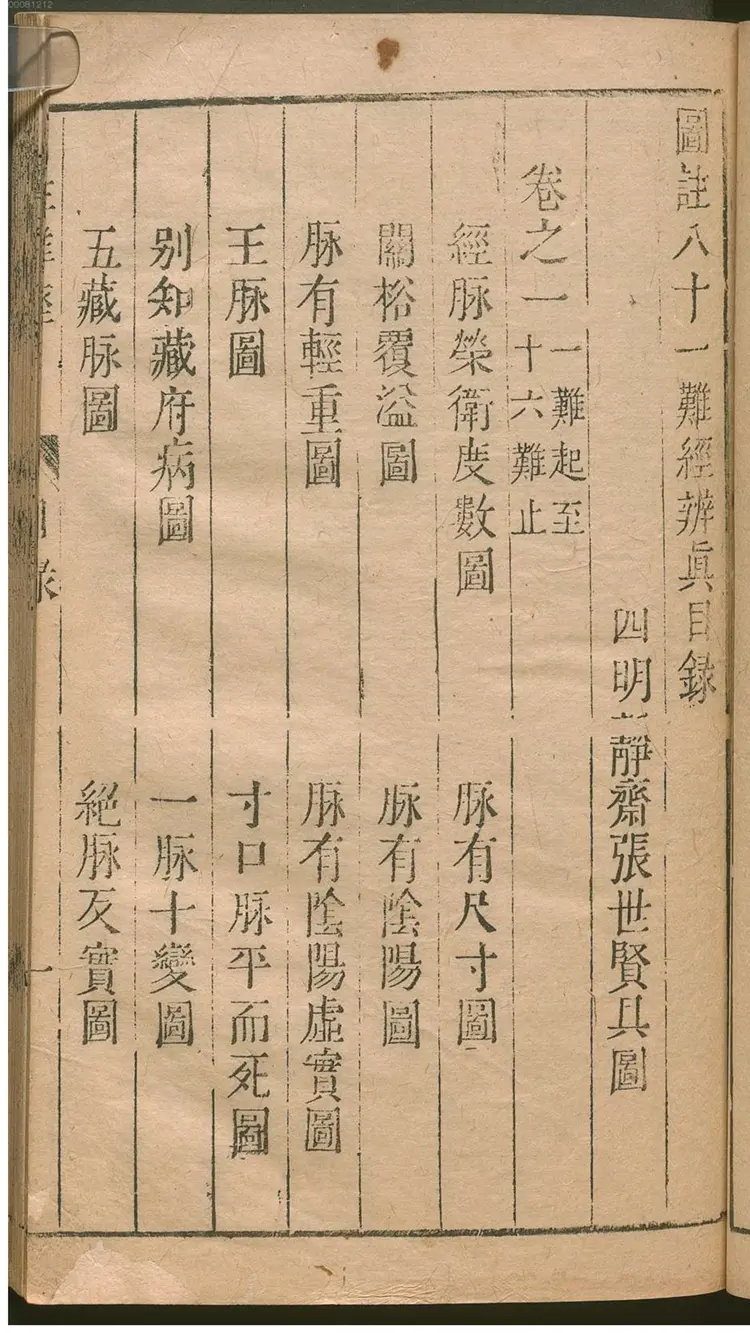 圖註八十一難經辨眞目錄
四明 靜齋張世賢具圖
卷之一 一難起至十六難止
經脉榮衛度數圖 脉有尺寸圖
關格覆溢圖 脉有陰陽圖
脉有輕重圖 脉有陰陽虛實圖
王脉圖 寸口脉平而死圖
别知藏府病圖 一脉十變圖
五藏脉圖 絕脉反實圖
目錄 一
00081212